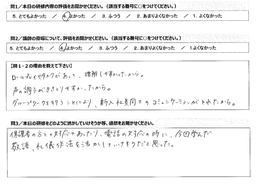 問1/本日の研修内容の評価をお聞かせください。(該当する番号に○をつけてください。)
5. とてもよかった / 4. よかった / 3. ふつう / 2. あまりよくなかった / 1. よくなかった
問2/講師の印象について、評価をお聞かせください。(該当する番号に○をつけてください。)
5. とてもよかった / 4. よかった / 3. ふつう / 2. あまりよくなかった / 1. よくなかった
【問1・2の理由を教えて下さい】
ロールプレイやクイズがあって、理解しやすかったから。
声の調子がききとりやすかったから。
グループワークをすることにより、新入社員同士のコミュニケーションがとれたから。
問3/本日の研修をどのように活かしていけそうか等、感想をお聞かせください。
保護者の方との対応であったり、電話の対応の時に、今回学んだ
敬語、礼儀作法を活かしていけそうだと思った。